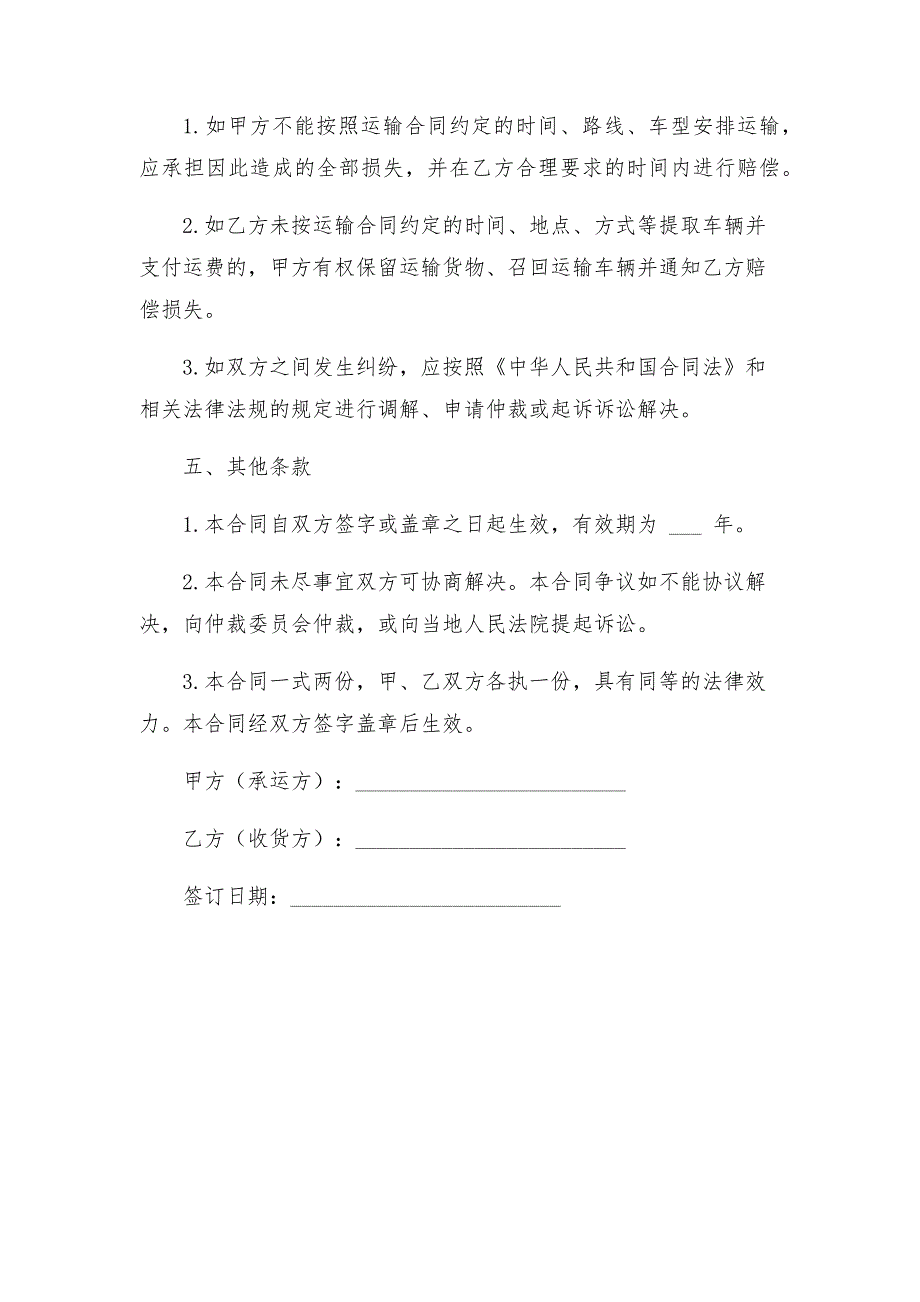 1.如甲方不能按照运输合同约定的时间、路线、车型安排运输，
应承担因此造成的全部损失，并在乙方合理要求的时间内进行赔偿。
2.如乙方未按运输合同约定的时间、地点、方式等提取车辆并
支付运费的，甲方有权保留运输货物、召回运输车辆并通知乙方赔
偿损失。
3.如双方之间发生纠纷，应按照《中华人民共和国合同法》和
相关法律法规的规定进行调解、申请仲裁或起诉诉讼解决。
五、其他条款
1.本合同自双方签字或盖章之日起生效，有效期为 ___ 年。
2.本合同未尽事宜双方可协商解决。本合同争议如不能协议解
决，向仲裁委员会仲裁，或向当地人民法院提起诉讼。
3.本合同一式两份，甲、乙双方各执一份，具有同等的法律效
力。本合同经双方签字盖章后生效。
甲方（承运方）：_________________________
乙方（收货方）：_________________________
签订日期：_________________________